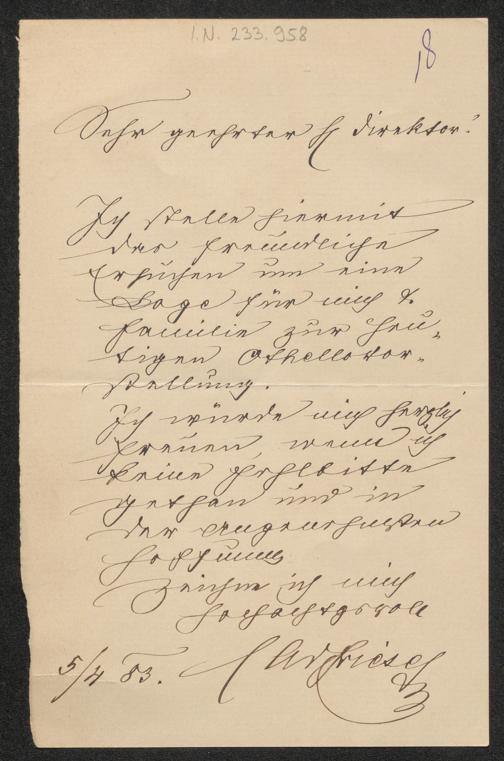 I.N. 233.958
18
Sehr geehrter H Direktor!
Ich stelle hiermit
das freundliche
Ersuchen um eine
Loge für mich &
Familie zur heu-
tigen Othellovor-
stellung.
Ich würde mich herzlich
freuen, wenn ich
keine Fehlbitte
gethan und in
der angenehmsten
Hoffnung
zeichne ich mich
hochachtgsvoll
5/4 83.